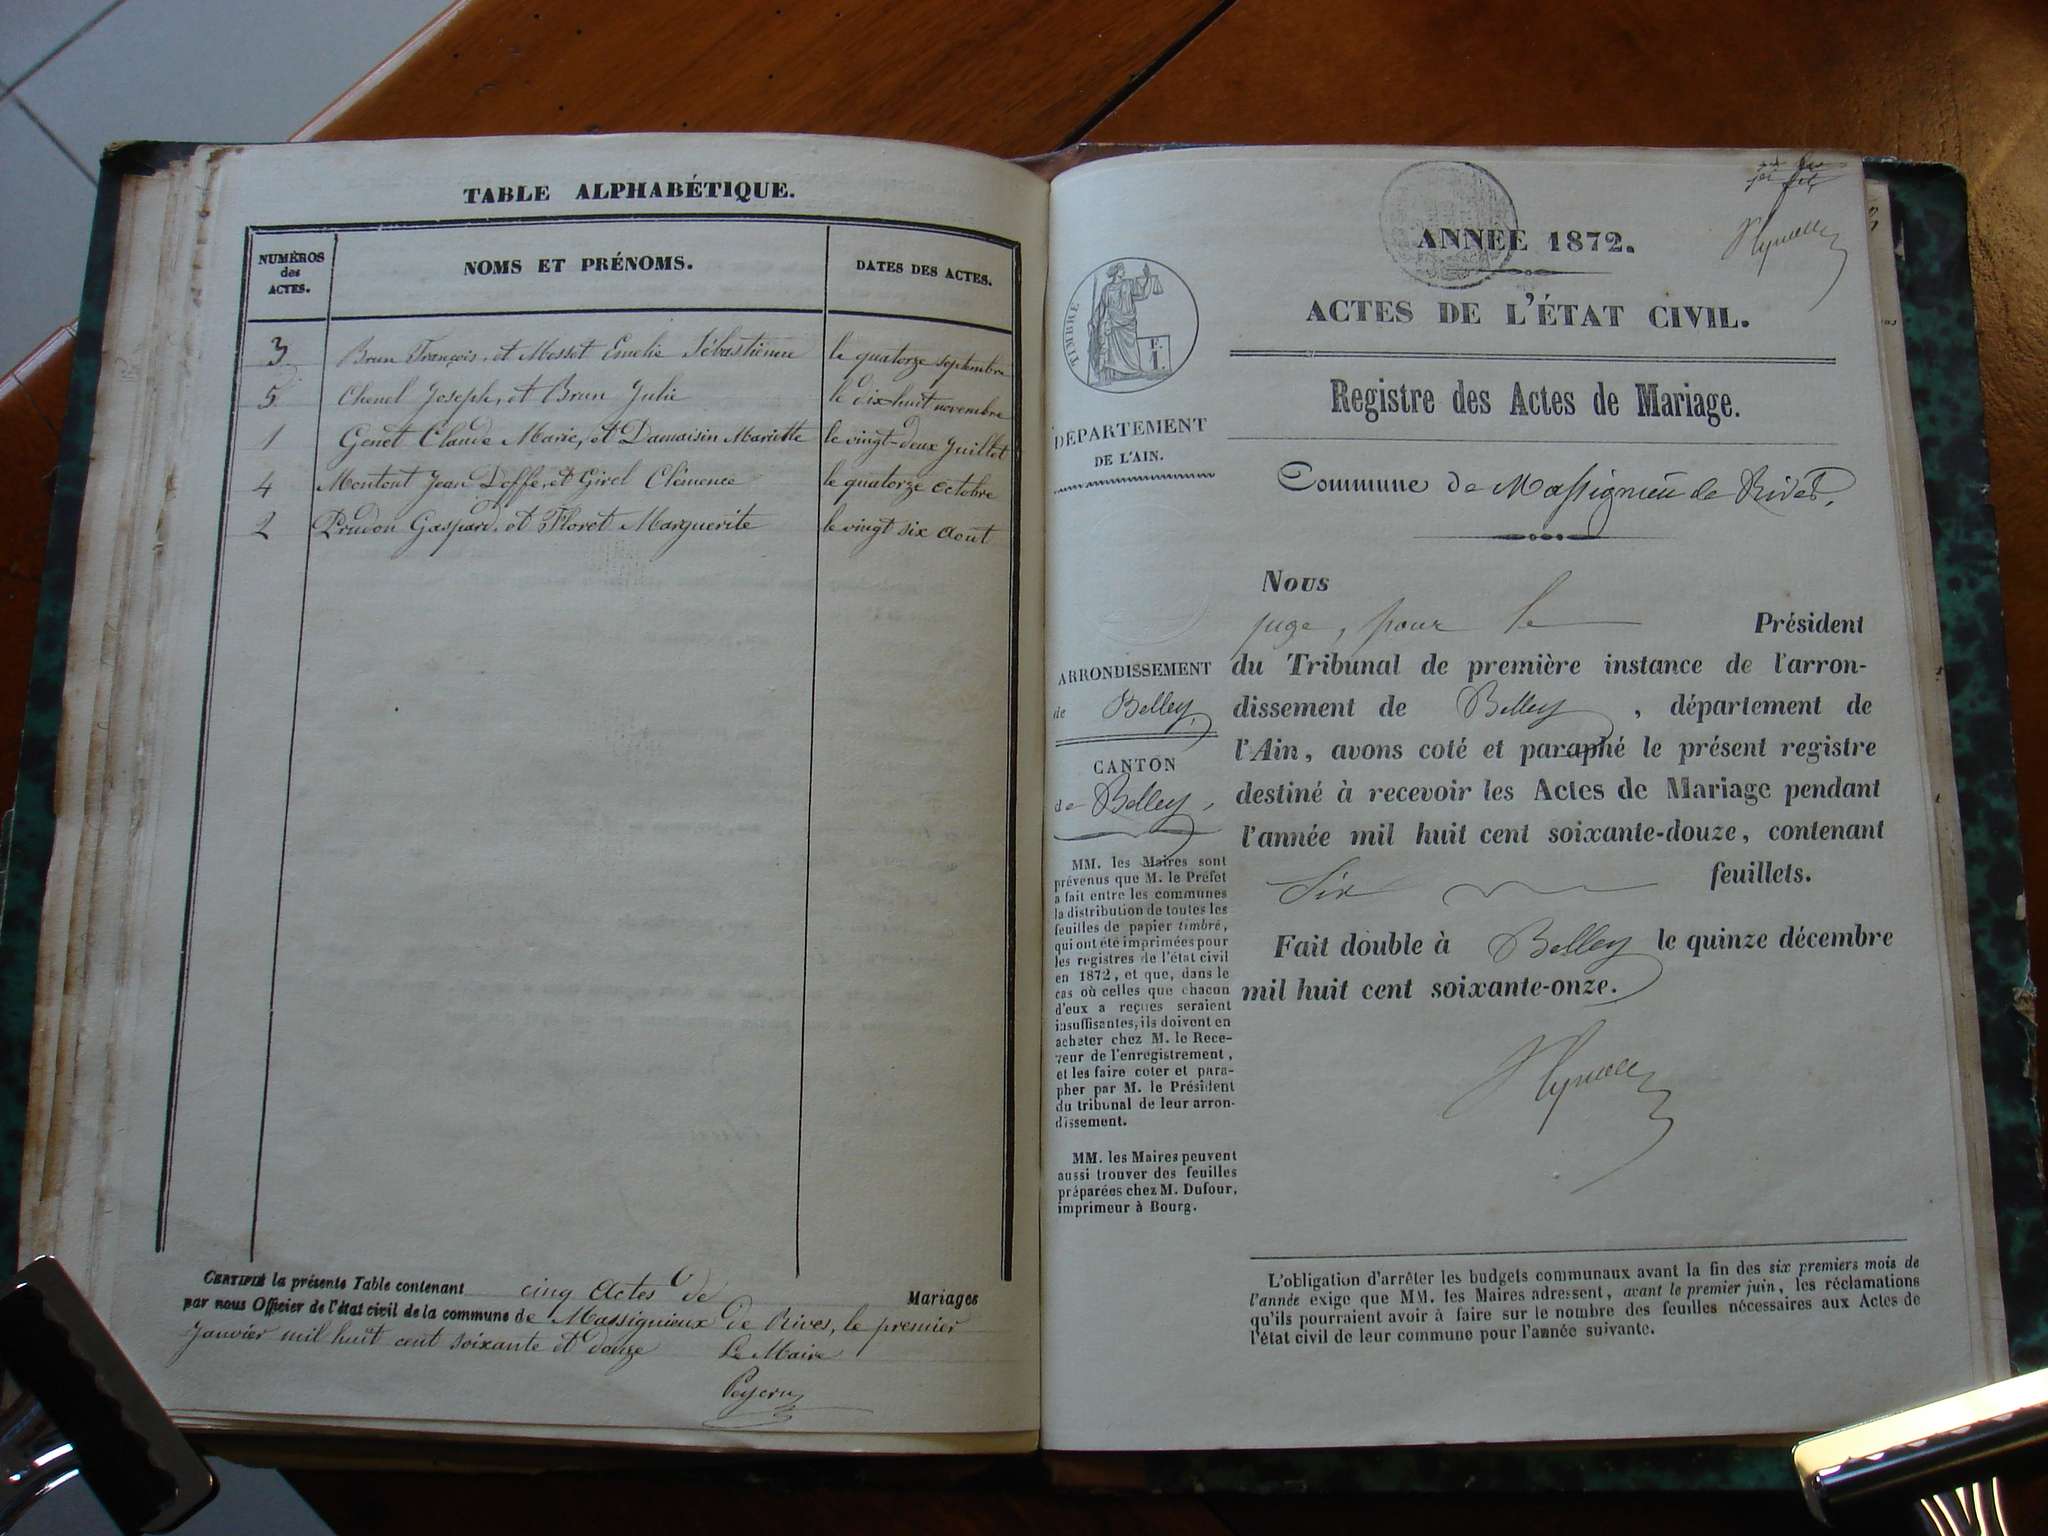 TABLE ALPHABÉTIQUE.
NUMÉROS des ACTES.
NOMS ET PRÉNOMS.
DATES DES ACTES.
3 Brun François, et Mosset Emelie Sébastienne le quatorze septembre
5 Chenel Joseph, et Brun Julie le dix huit novembre
1 Genet Claude Marie, et Damaisin Mariette le vingt-deux Juillet
4 Montont Jean Joffe, et Girel Clémence le quatorze Octobre
2 Prudon Gaspard, et Floret Marguerite le vingt six Aout
CERTIFIÉ la présente Table contenant cinq Actes de Mariages
par nous Officier de l'état civil de la commune de Massignieux de Rives, le premier
Janvier mil huit cent soixante et douze
Le Maire
ANNÉE 1872.
ACTES DE L'ÉTAT CIVIL.
Registre des Actes de Mariage.
Commune de Massignieu de Rives.
TIMBRE
F.
1.
DÉPARTEMENT
DE L'AIN.
ARRONDISSEMENT
de Belley
CANTON
de Belley,
MM. les Maires sont
prévenus que M. le Préfet
a fait entre les communes
la distribution de toutes les
feuilles de papier timbré,
qui ont été imprimées pour
les registres de l'état civil
en 1872, et que, dans le
cas où celles que chacun
d'eux a reçues seraient
insuffisantes, ils doivent en
acheter chez M. le Rece-
veur de l'enregistrement,
et les faire coter et para-
pher par M. le Président
du tribunal de leur arron-
dissement.
MM. les Maires peuvent
aussi trouver des feuilles
préparées chez M. Dufour,
imprimeur à Bourg.
Nous
juge, pour le Président
du Tribunal de première instance de l'arron-
dissement de Belley, département de
l'Ain, avons coté et paraphé le présent registre
destiné à recevoir les Actes de Mariage pendant
l'année mil huit cent soixante-douze, contenant
Six feuillets.
Fait double à Belley le quinze décembre
mil huit cent soixante-onze.
L'obligation d'arrêter les budgets communaux avant la fin des six premiers mois de
l'année exige que MM. les Maires adressent, avant le premier juin, les réclamations
qu'ils pourraient avoir à faire sur le nombre des feuilles nécessaires aux Actes de
l'état civil de leur commune pour l'année suivante.